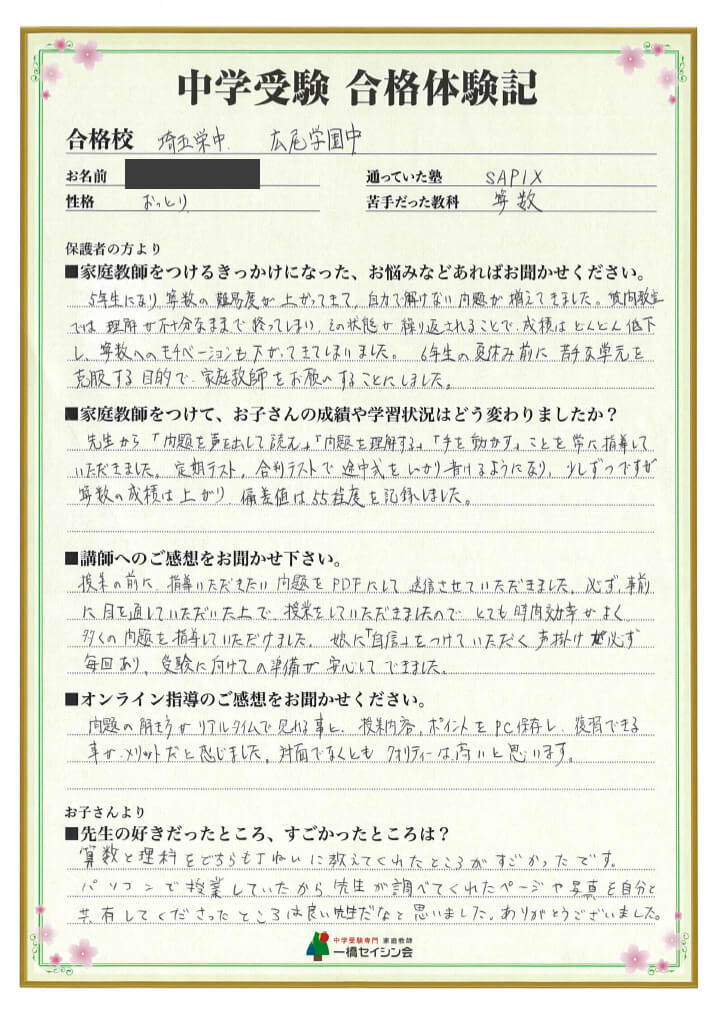 中学受験 合格体験記
合格校 埼玉栄中. 広尾学園中
お名前
通っていた塾 SAPIX
性格 おっとり
苦手だった教科 算数
保護者の方より
■家庭教師をつけるきっかけになった、お悩みなどあればお聞かせください。
5年生になり算数の難易度が上がってきて、自力で解けない問題が増えてきました。
では理解が不十分なままで終ってしまい、その状態が繰り返されることで、成績はどんどん低下
し、算数へのモチベーションも下がってきてしまいました。 6年生の夏休み前に苦手な単元を
克服する目的で、家庭教師をお願いすることにしました。
■家庭教師をつけて、お子さんの成績や学習状況はどう変わりましたか?
先生から「問題を声を出して読む」「問題を理解する」「手を動かす」ことを常に指導して
いただきました。定期テスト、合判テストで途中式をしっかり書けるようになり、少しずつですが
算数の成績は上がり、偏差値は55程度を記録しました。
■講師へのご感想をお聞かせ下さい。
授業の前に、指導いただきたい問題をPDFにして送信させていただきました。必ず、事前
に目を通していただいた上で、授業をしていただきましたので、とても時間効率がよく
多くの問題を指導していただけました。娘に「自信」をつけていただく声掛け必ず
毎回あり、受験に向けての準備が安心してできました。
■オンライン指導のご感想をお聞かせください。
問題の解き方がリアルタイムで見れる事と、授業内容、ポイントをPC保存し、復習できる
事がメリットだと感じました。対面でなくともクオリティーは高いと思います。
お子さんより
■先生の好きだったところ、すごかったところは?
算数と理科をどちらも丁ねいに教えてくれたところがすごかったです。
パソコンで授業していたから先生が調べてくれたページや写真を自分と
共有してくださったところは良い先生だなと思いました。ありがとうございました。
中学受験専門 家庭教師
一橋セイシン会